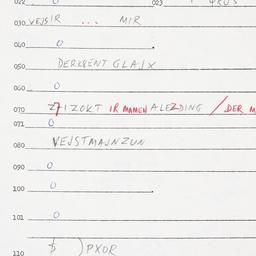 022 0 023
030 VEJSIR ... MIR
040 0
050 DERKENT GLAJX
060 0
070 ZIZOKT IR MAMEN ALEZDING / DER M
071 0
080 VEJSTMAJNZUN
090 0
100 0
101 0
110 $ ) PXOR